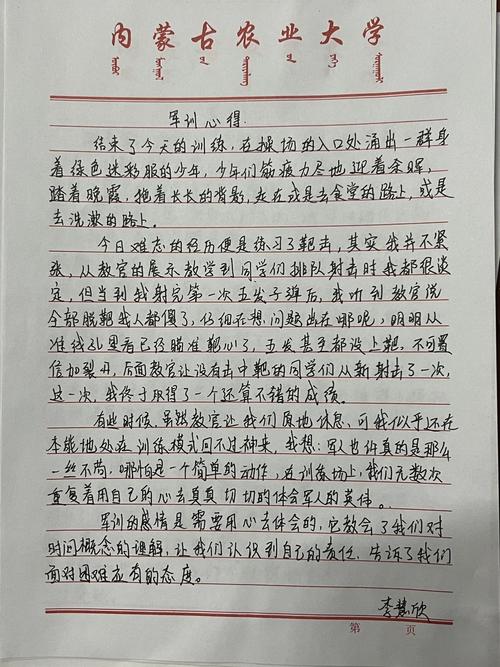 内蒙古农业大学
军训心得.
结束了今天的训练，在操场的入口处涌出一群身
着绿色迷彩服的少年，少年们筋疲力尽地迎着余晖，
踏着晚霞，拖着长长的背影，走在或是去食堂的路上，或是
去洗漱的路上。
今日难忘的经历便是练习了靶击，其实我并不紧
张，从教官的展示教学到同学们排队射击时我都很淡
定，但当到我射完第一次五发子弹后，我听到教官说
全部脱靶我人都傻了，仔细在想问题出在哪呢，明明从
准线孔里看已经瞄准靶心了，五发甚至都没上靶，不可置
信加裂开，后面教官让没有击中靶的同学们从新射击了一次，
这一次，我终于取得了一个还算不错的成绩。
有些时候，虽然教官让我们原地休息，可我似乎还在
本能地处在训练模式回不过神来，我想：军人也许真的是那么
一丝不苟，哪怕是一个简单的动作，在训练场上，我们无数次
重复着用自己的心去真真切切的体会军人的英伟。
军训的感情是需要用心去体会的，它教会了我们对
时间概念的理解，让我们认识到自己的责任，告诉了我们
面对困难应有的态度。
李慧欣
第 页